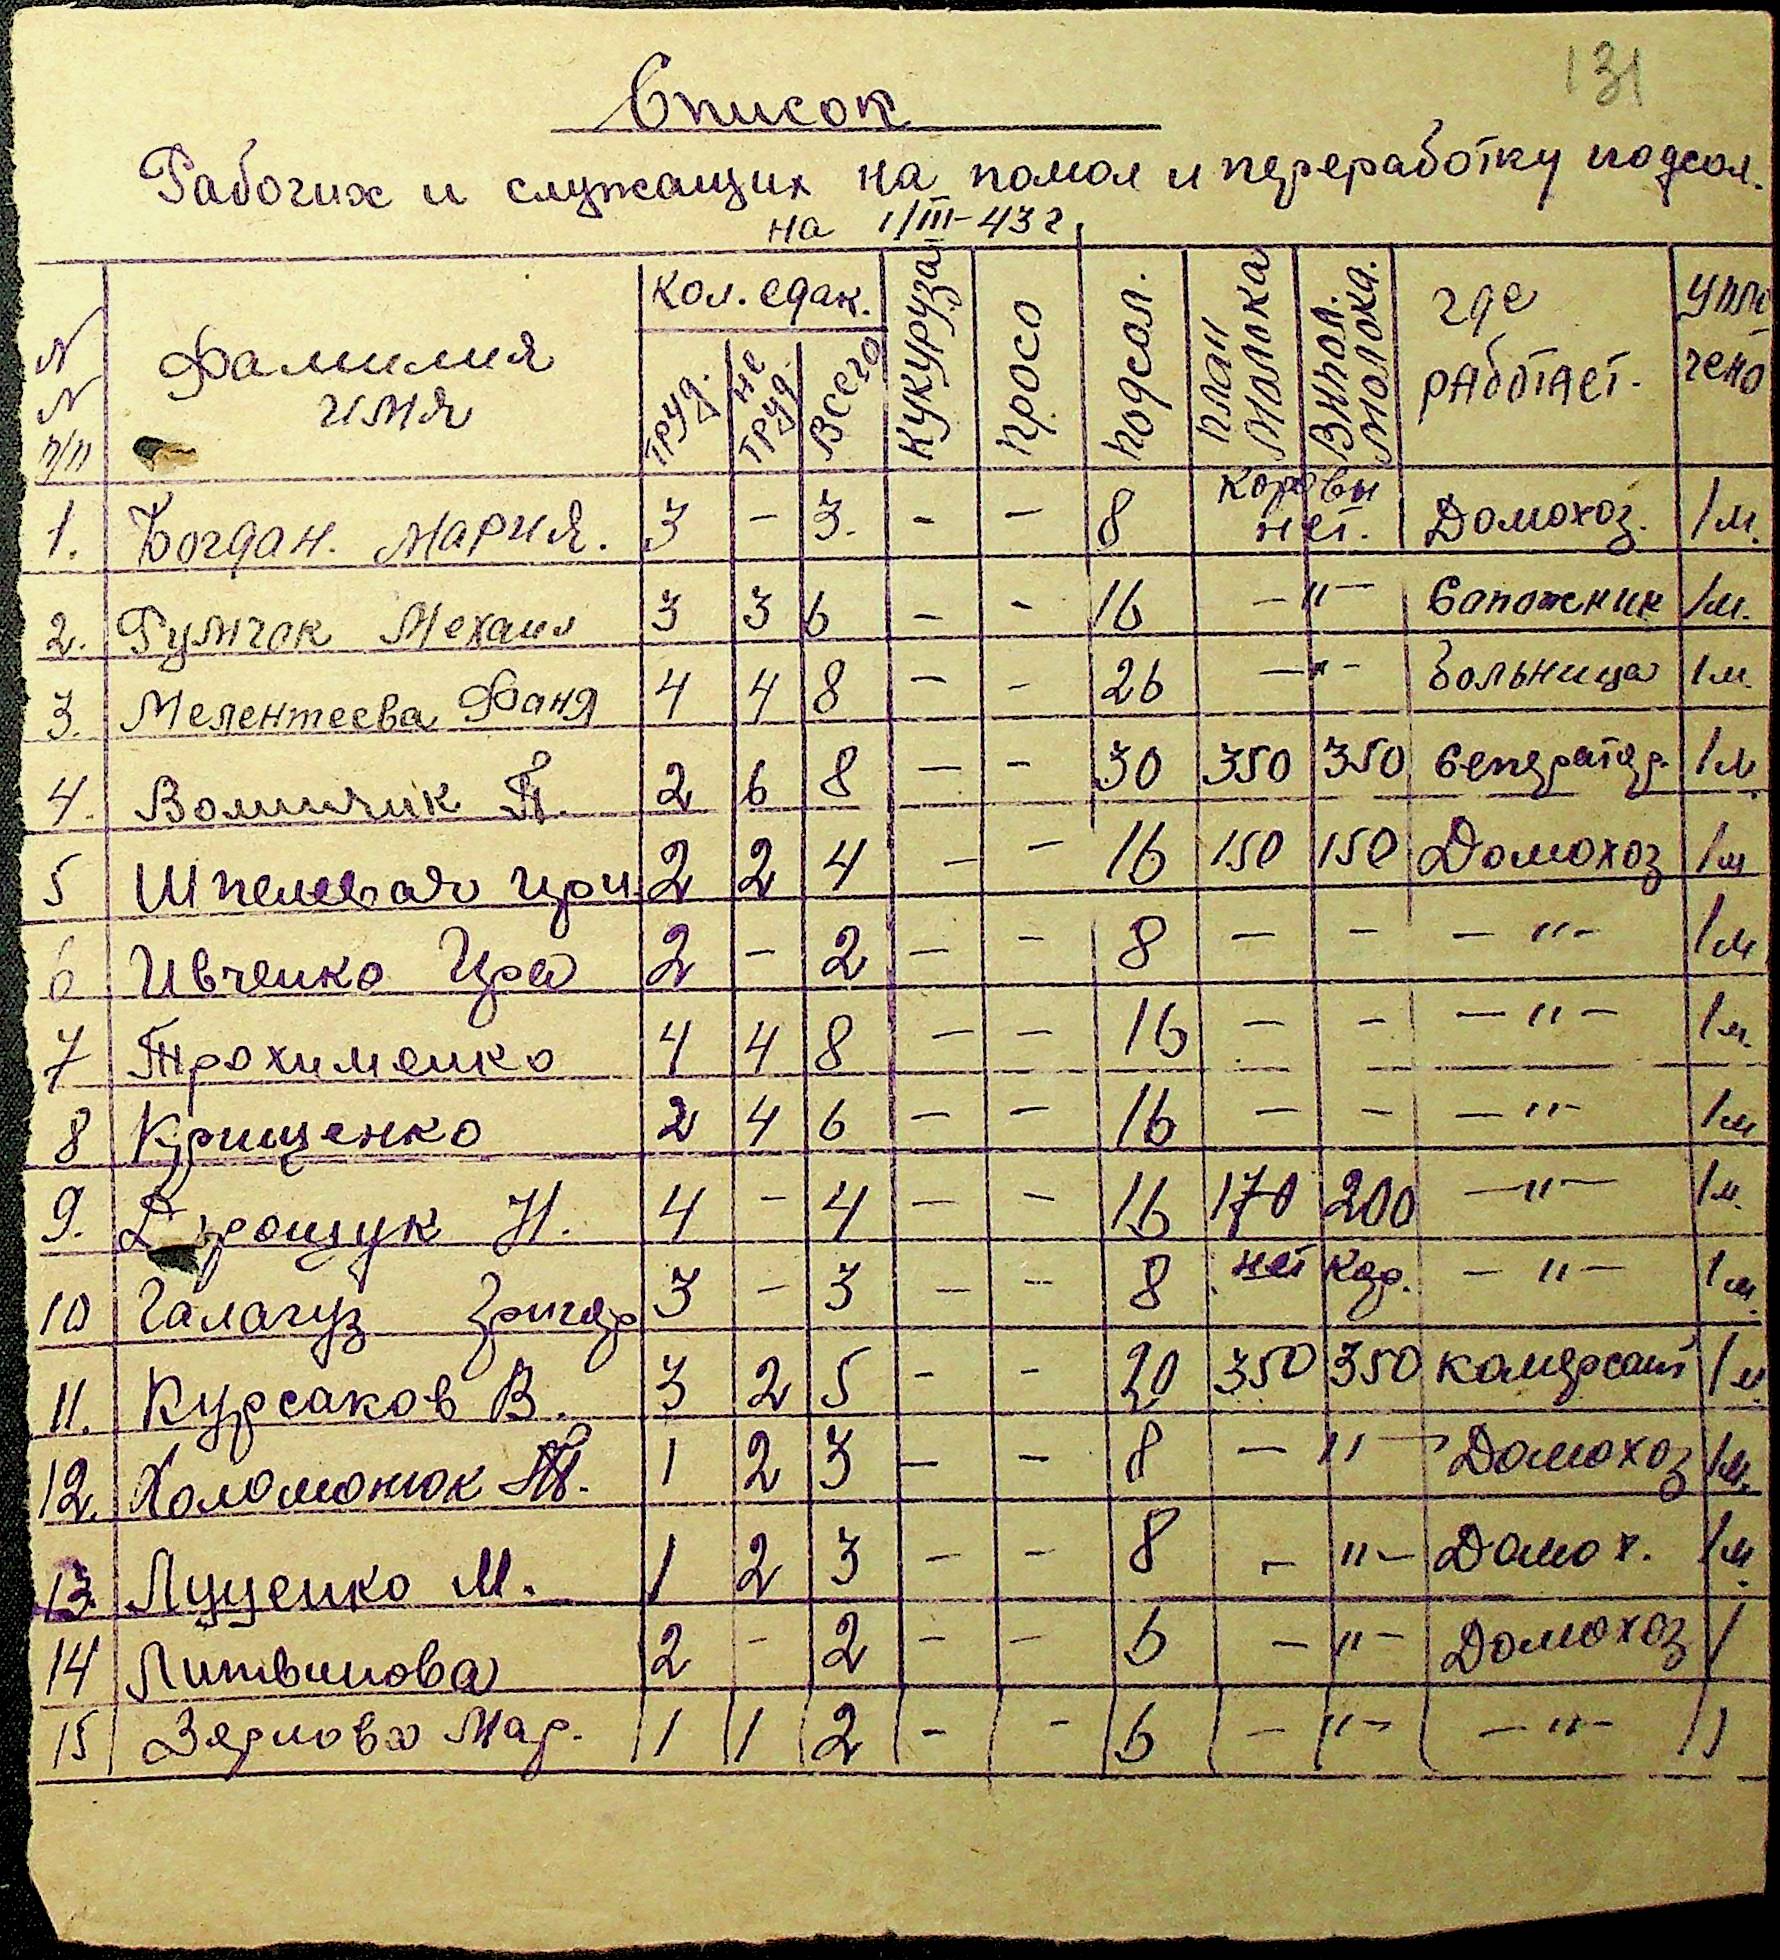 131
Список
Рабочих и служащих на помол и переработку подсол.
на 1/III-43 г.
N N п/п Фамилия имя кол. едак. труд. не труд. всего кукуруза просо подсол. план молока выпол. молока. где работает. упла чено
1. Богдан. Мария. 3 - 3. - - 8 коровы нет. Домохоз. 1 м.
2. Гумчак Мехаил 3 3 6 - - 16 - " - Сапожник 1 м.
3. Мелентеева Фаня 4 4 8 - - 26 - " - больница 1 м.
4. Волинчик П. 2 6 8 - - 30 350 350 Сепаратор. 1 м.
5 Шпелевая Ири. 2 2 4 - - 16 150 150 Домохоз 1 м
6 Ивченко Ира 2 - 2 - - 8 - - - " - 1 м
7 Трохименко 4 4 8 - - 16 - - - " - 1 м.
8 Крищенко 2 4 6 - - 16 - - - " - 1 м
9. Дорощук Н. 4 - 4 - - 16 170 200 - " - 1 м.
10 Галагуз Григор 3 - 3 - - 8 нет кор. - " - 1 м.
11. Курсаков В. 3 2 5 - - 20 350 350 1 м.
12. Холомонюк П. 1 2 3 - - 8 - " - Домохоз 1 м.
13. Луценко М. 1 2 3 - - 8 - " - Домох. 1 м.
14 Литвинова 2 - 2 - - 6 - " - Домохоз 1
15 Мар. 1 1 2 - - 6 - " - - " - 1